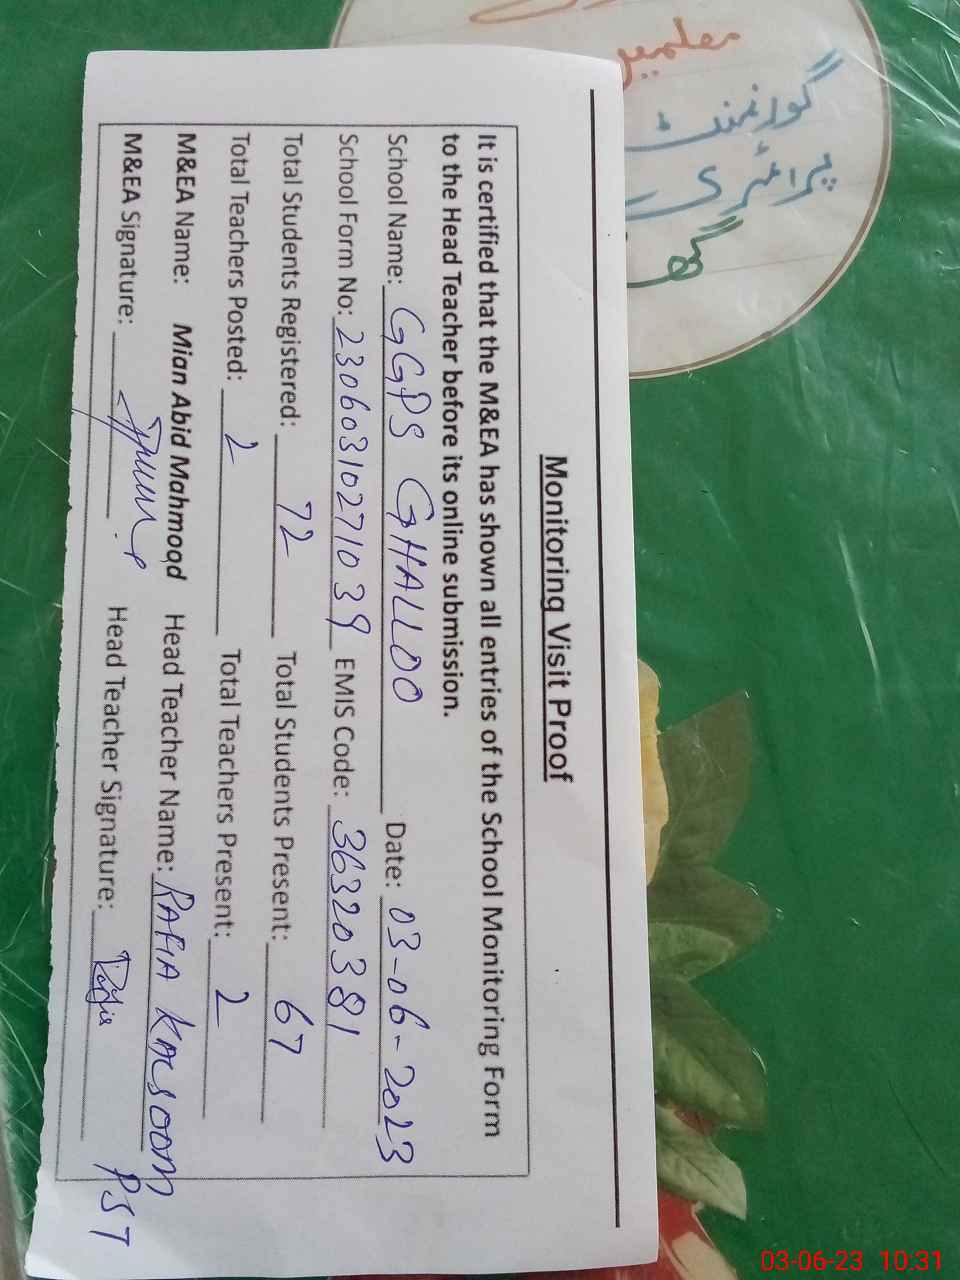 Monitoring Visit Proof
It is certified that the M&EA has shown all entries of the School Monitoring Form
to the Head Teacher before its online submission.
School Name: GGPS GHALLOO Date: 03-06-2023
School Form No: 23060310271039 EMIS Code: 36320381
Total Students Registered: 72 Total Students Present: 67
Total Teachers Posted: 2 Total Teachers Present: 2
M&EA Name: Mian Abid Mahmood Head Teacher Name: RAFIA KALSOOM
M&EA Signature: Head Teacher Signature: Rafia PST
معلمین
گورنمنٹ
پرائمری
03-06-23 10:31